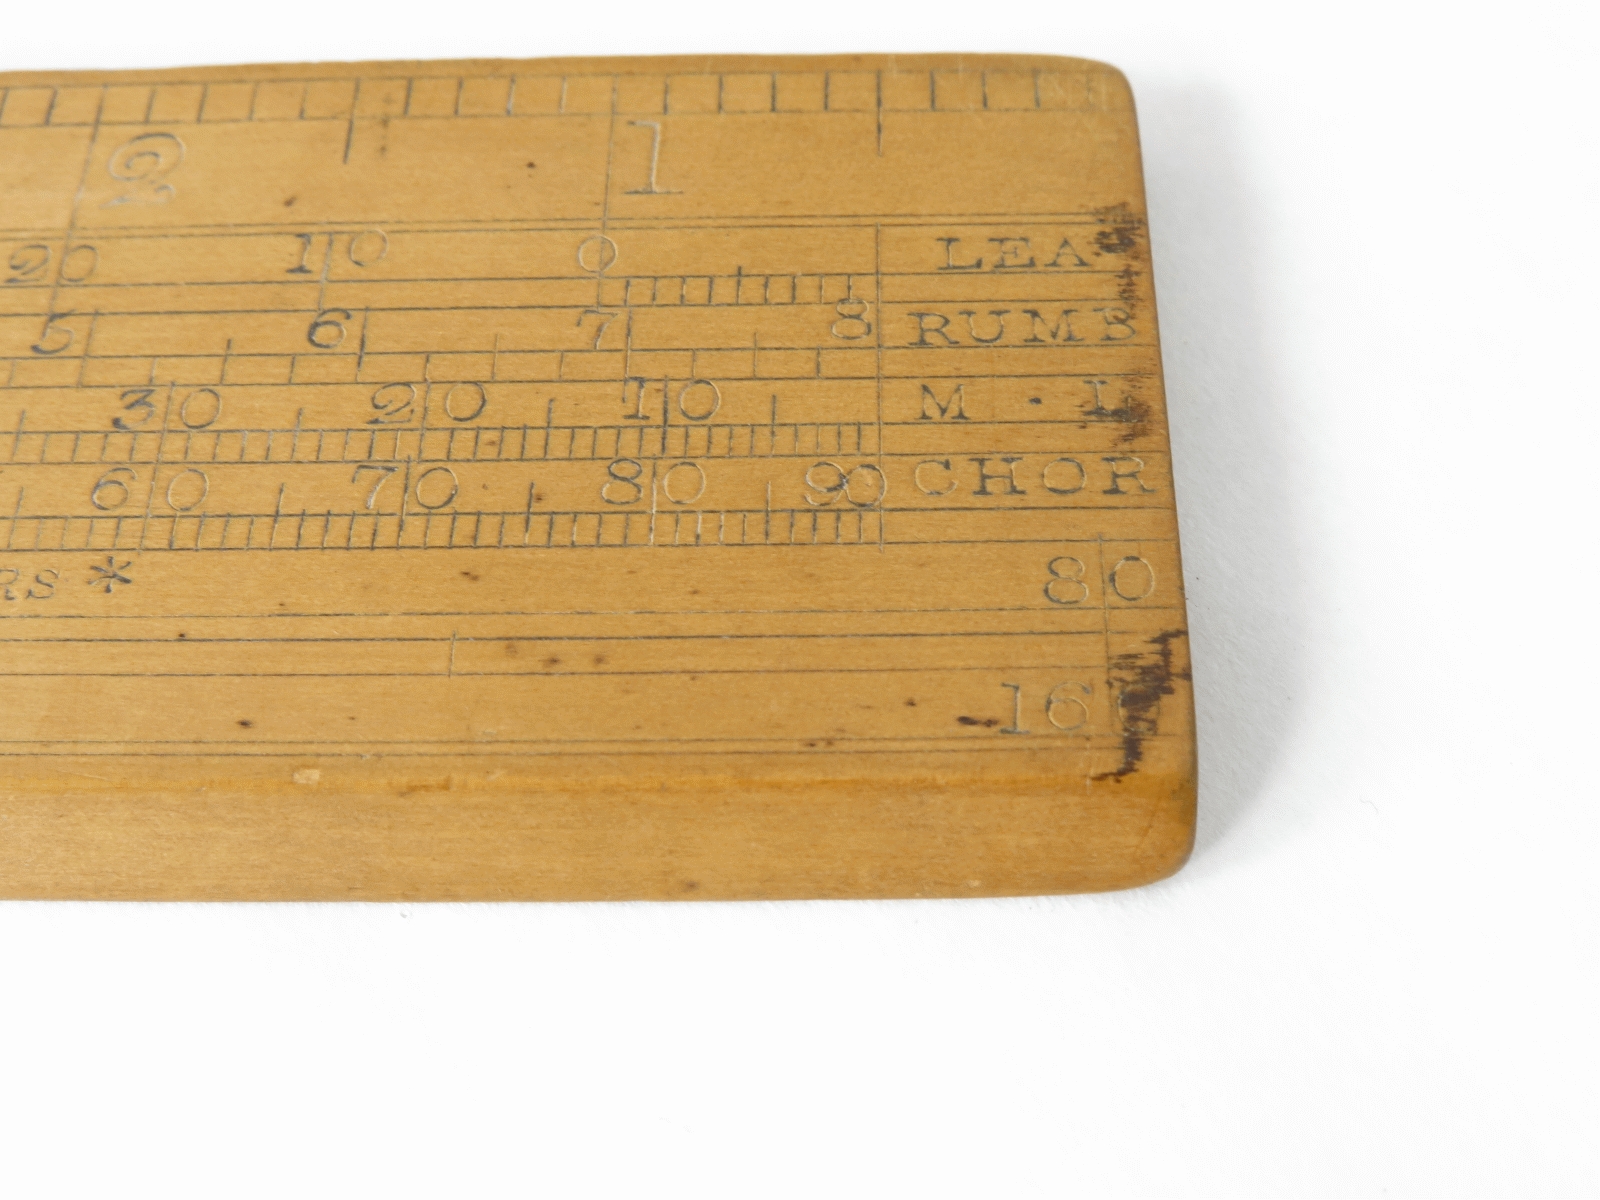 2 1
20 10 0 LEA
5 6 7 8 RUMB
30 20 10 M · L
60 70 80 90 CHOR
RS * 80
160